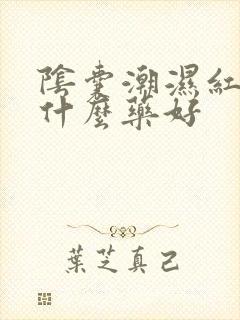 陰囊潮濕紅
什麼藥好
葉芝真己